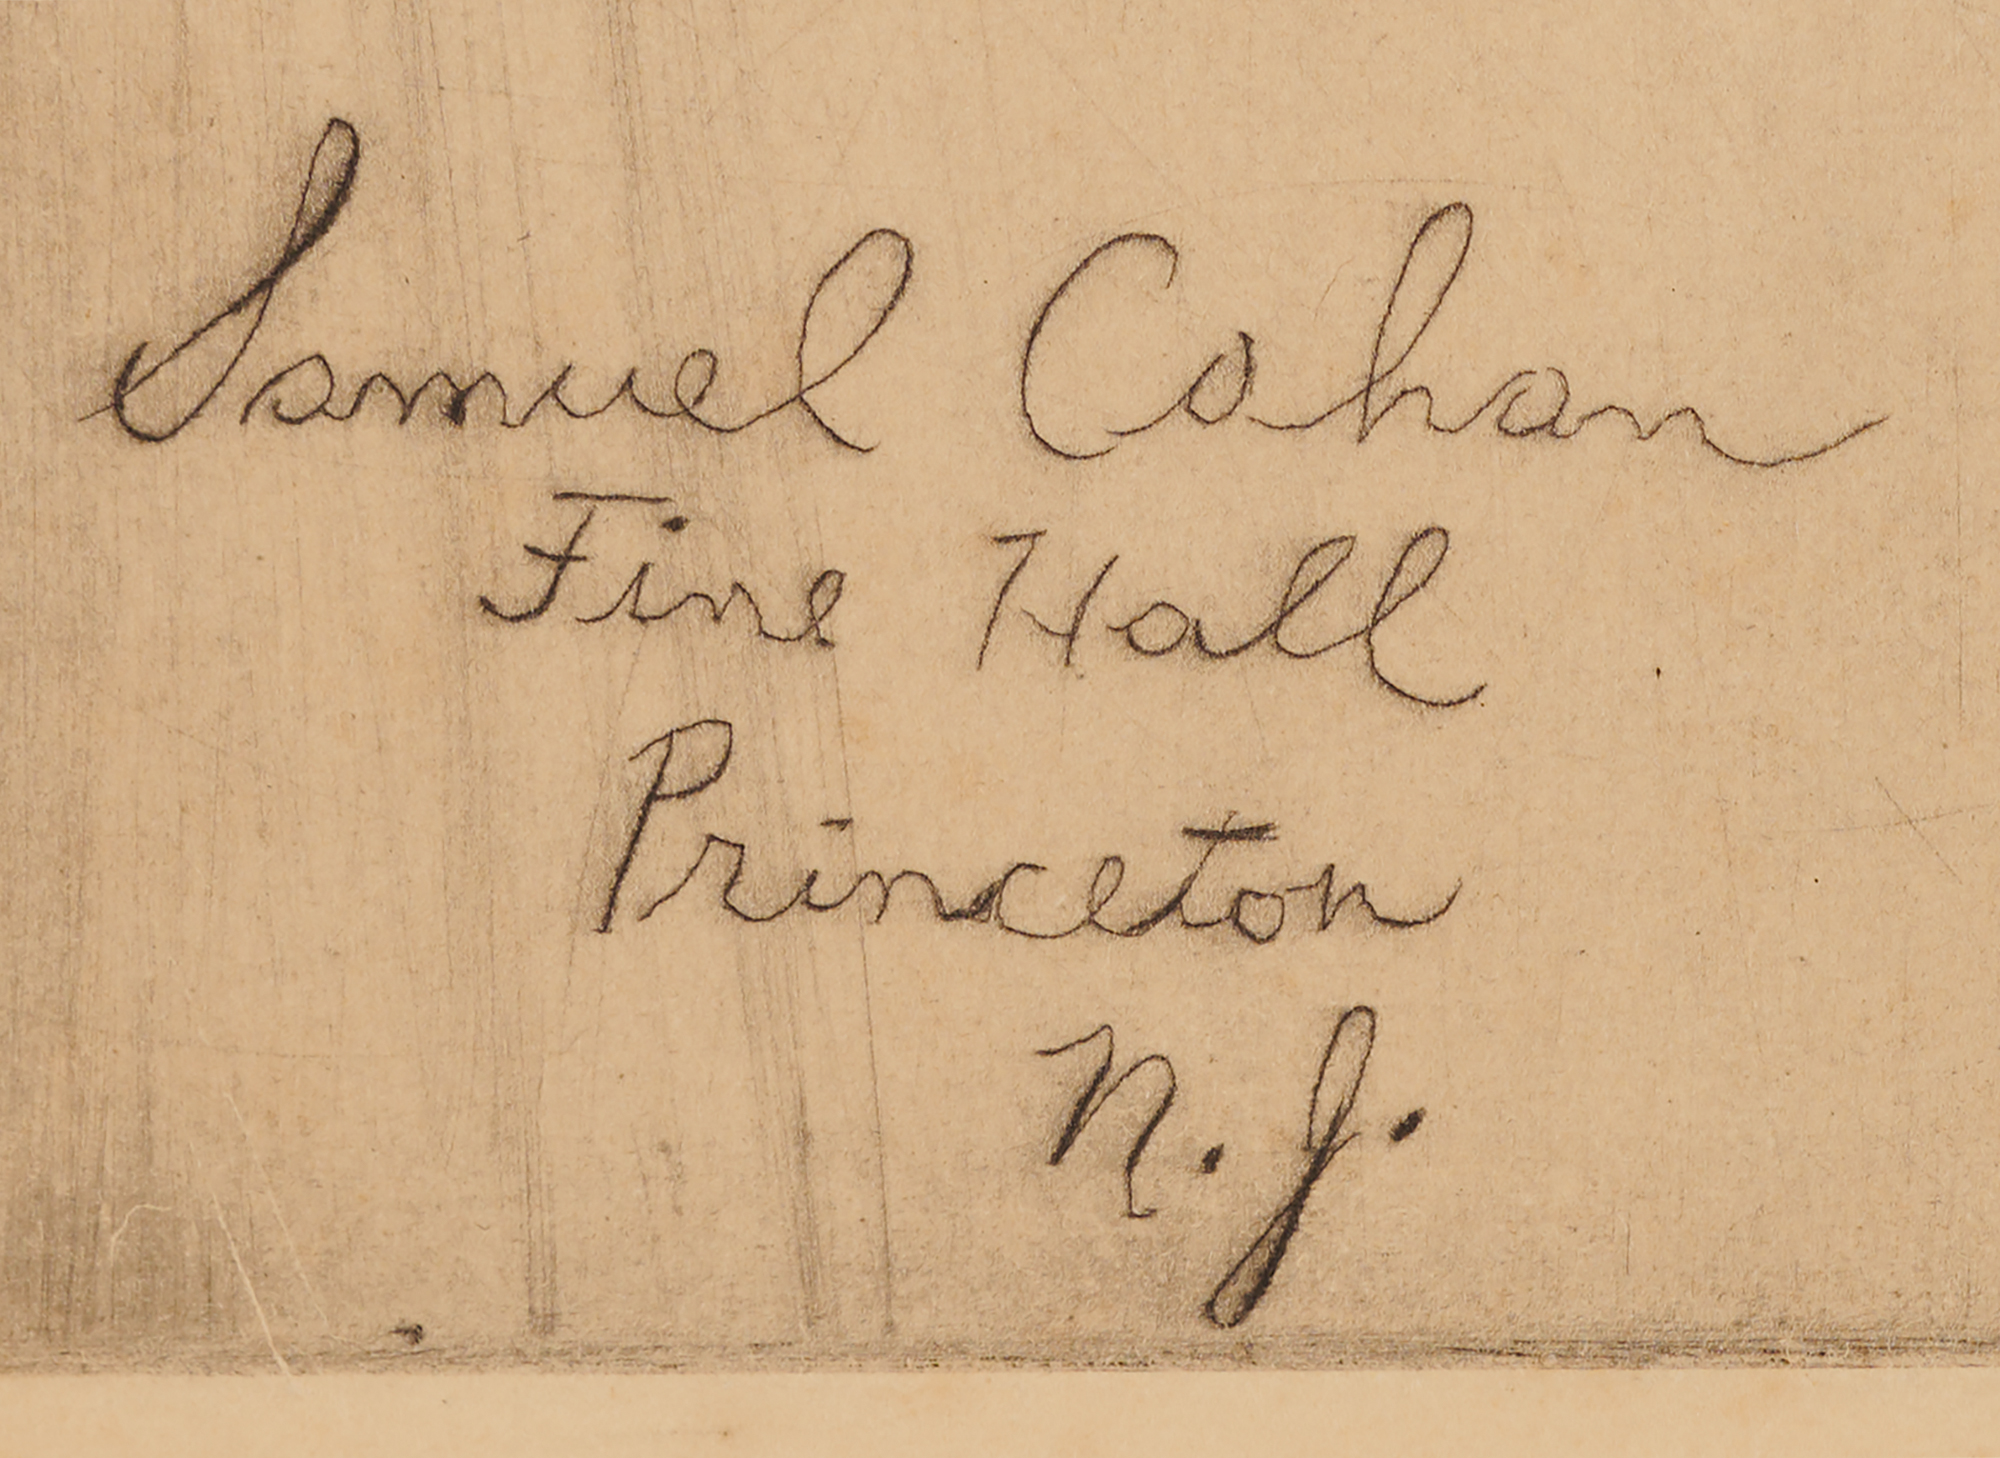 Samuel Cahan
Fine Hall
Princeton
N. J.